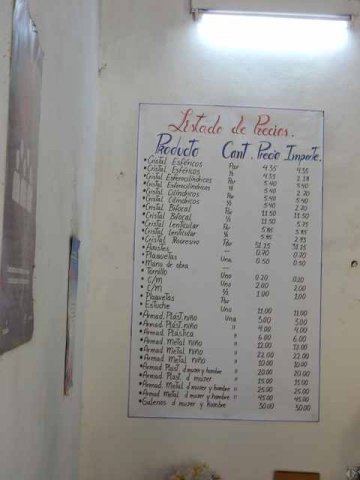 Listado de Precios.
Producto Cant. Precio Importe.
• Cristal Esféricos Par 4.35 4.35
• Cristal Esféricos ½ 4.35 2.18
• Cristal Esferocilíndricos Par 5.40 5.40
• Cristal Esferocilíndricos ½ 5.40 2.70
• Cristal Cilíndricos Par 5.40 5.40
• Cristal Cilíndricos ½ 5.40 2.70
• Cristal Bifocal Par 11.50 11.50
• Cristal Bifocal ½ 11.50 5.75
• Cristal Lenticular Par 5.85 5.85
• Cristal Lenticular ½ 5.85 2.93
• Cristal Progresivo Par 31.25 31.25
• Ajustes 0.20 0.20
• Plaquetas Una 0.50 0.50
• Mano de obra
• Tornillo Uno 0.20 0.20
• C/M Uno 2.00 2.00
• C/M ½ 1.00 1.00
• Plaquetas
• Estuche Uno 11.00 11.00
• Armad. Plást. niño Una 3.00 3.00
• Armad. Plást. niño " 4.00 4.00
• Armad. Plástica " 6.00 6.00
• Armad. Metal niño " 12.00 12.00
• Armad. Metal niño " 22.00 22.00
• Armad. Metal niño " 10.00 10.00
• Armad. Plást. d mujer y hombre " 20.00 20.00
• Armad. Plast. d mujer " 15.00 15.00
• Armad. Metal d mujer " 25.00 25.00
• Armad. Metal d mujer y hombre " 45.00 45.00
• Galenos d mujer y hombre 30.00 30.00